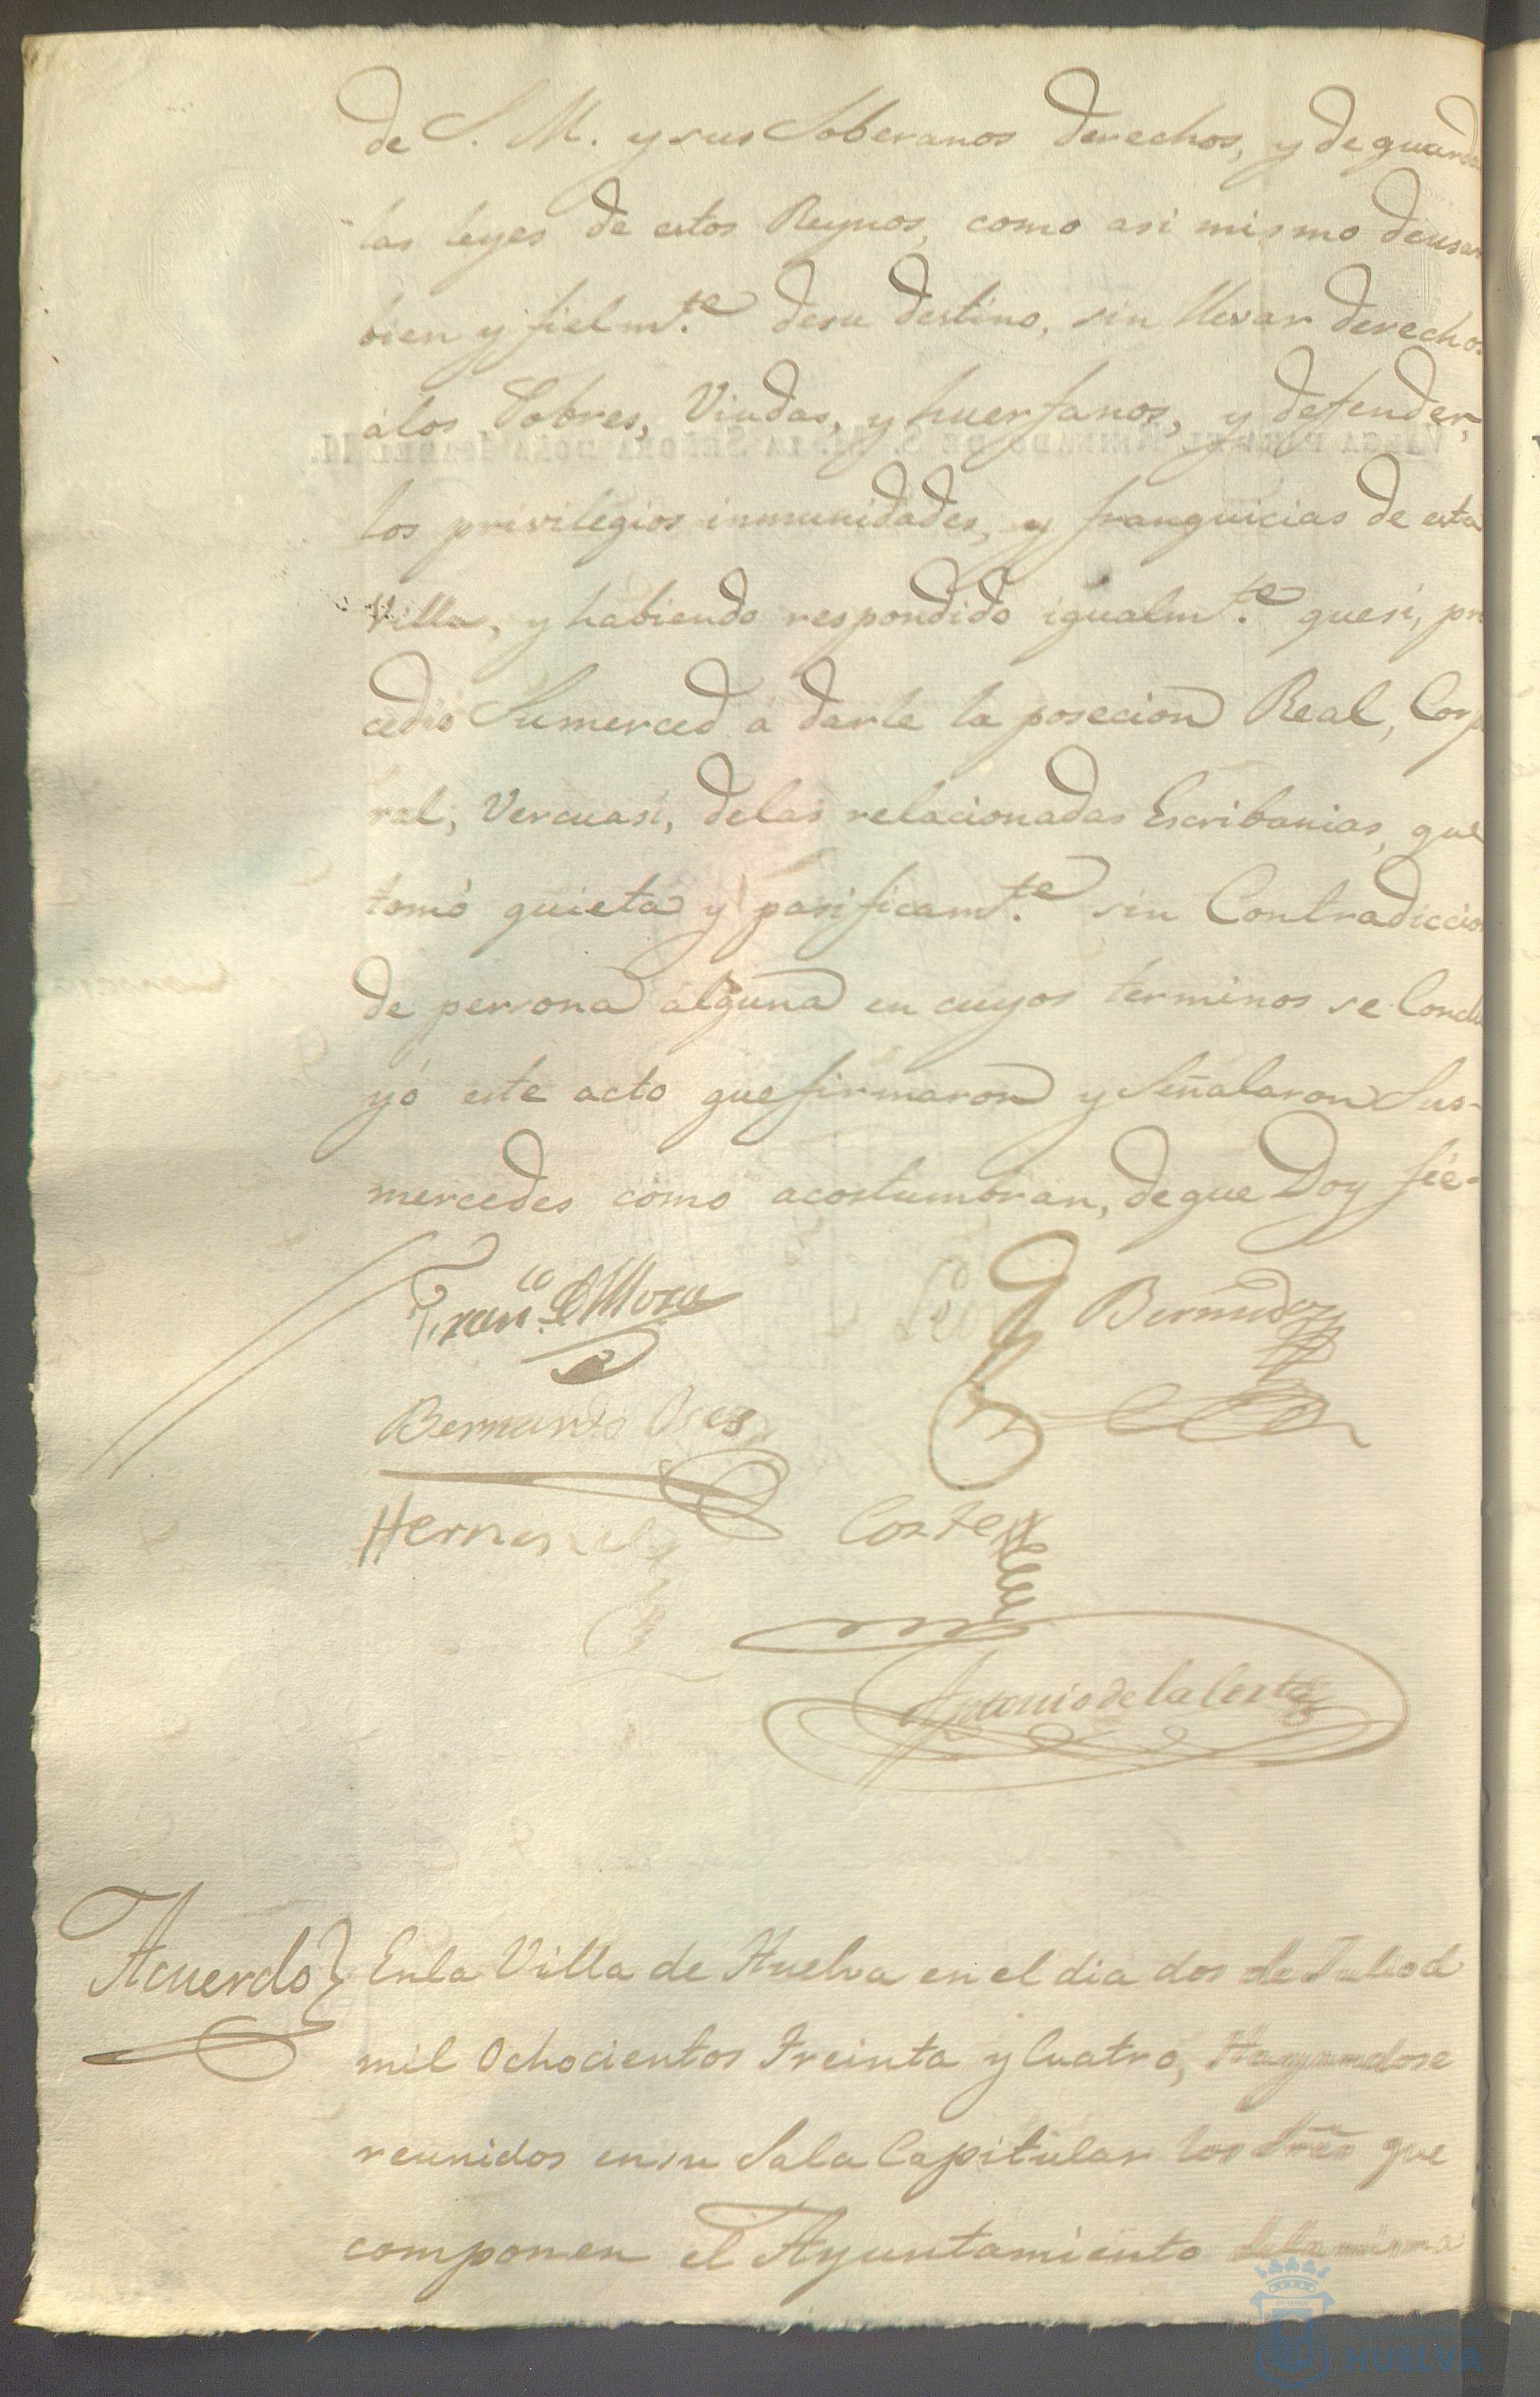 de S. M. y sus Soberanos derechos, y de guarda
las leyes de estos Reynos, como asi mismo deusar
bien y fielm.te desu destino, sin llevar derechos
álos Pobres, Viudas, y huerfanos, y defender,
los privilegios inmunidades, y franquicias de esta
Villa, y habiendo respondido igualm.te quesi, pro
cedio Sumerced á darle la posecion Real, Corpo
ral, Vercuasi, delas relacionadas Escribanias, que
tomó quieta y pasificamt.e sin Contradiccion
de persona alguna en cuyos terminos se Conclu
yó este acto que firmaron y Señalaron Sus-
mercedes como acostumbran, de que Doy fée-
Fran.co de Mora
Bermudez
Bernardo Oses
Hernandez Cortes
Antonio de la Corte
VALGA PARA EL REINADO DE S. M. LA SEÑORA DOÑA ISABEL II.
Acuerdo} Enla Villa de Huelva en el dia dos de Julio d
mil Ochocientos treinta y Cuatro, Hayandose
reunidos en su Sala Capitular los Sres que
componen el Ayuntamiento dela misma
HUELVA